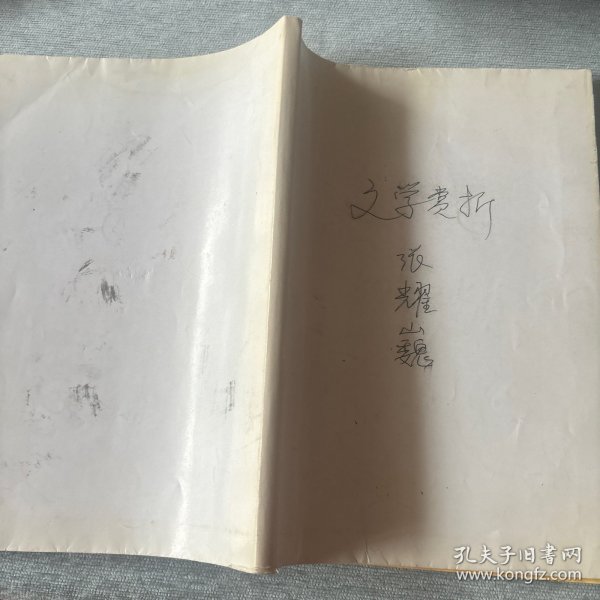 文学赏析
张
耀
巍
孔夫子旧书网
www.kongfz.com